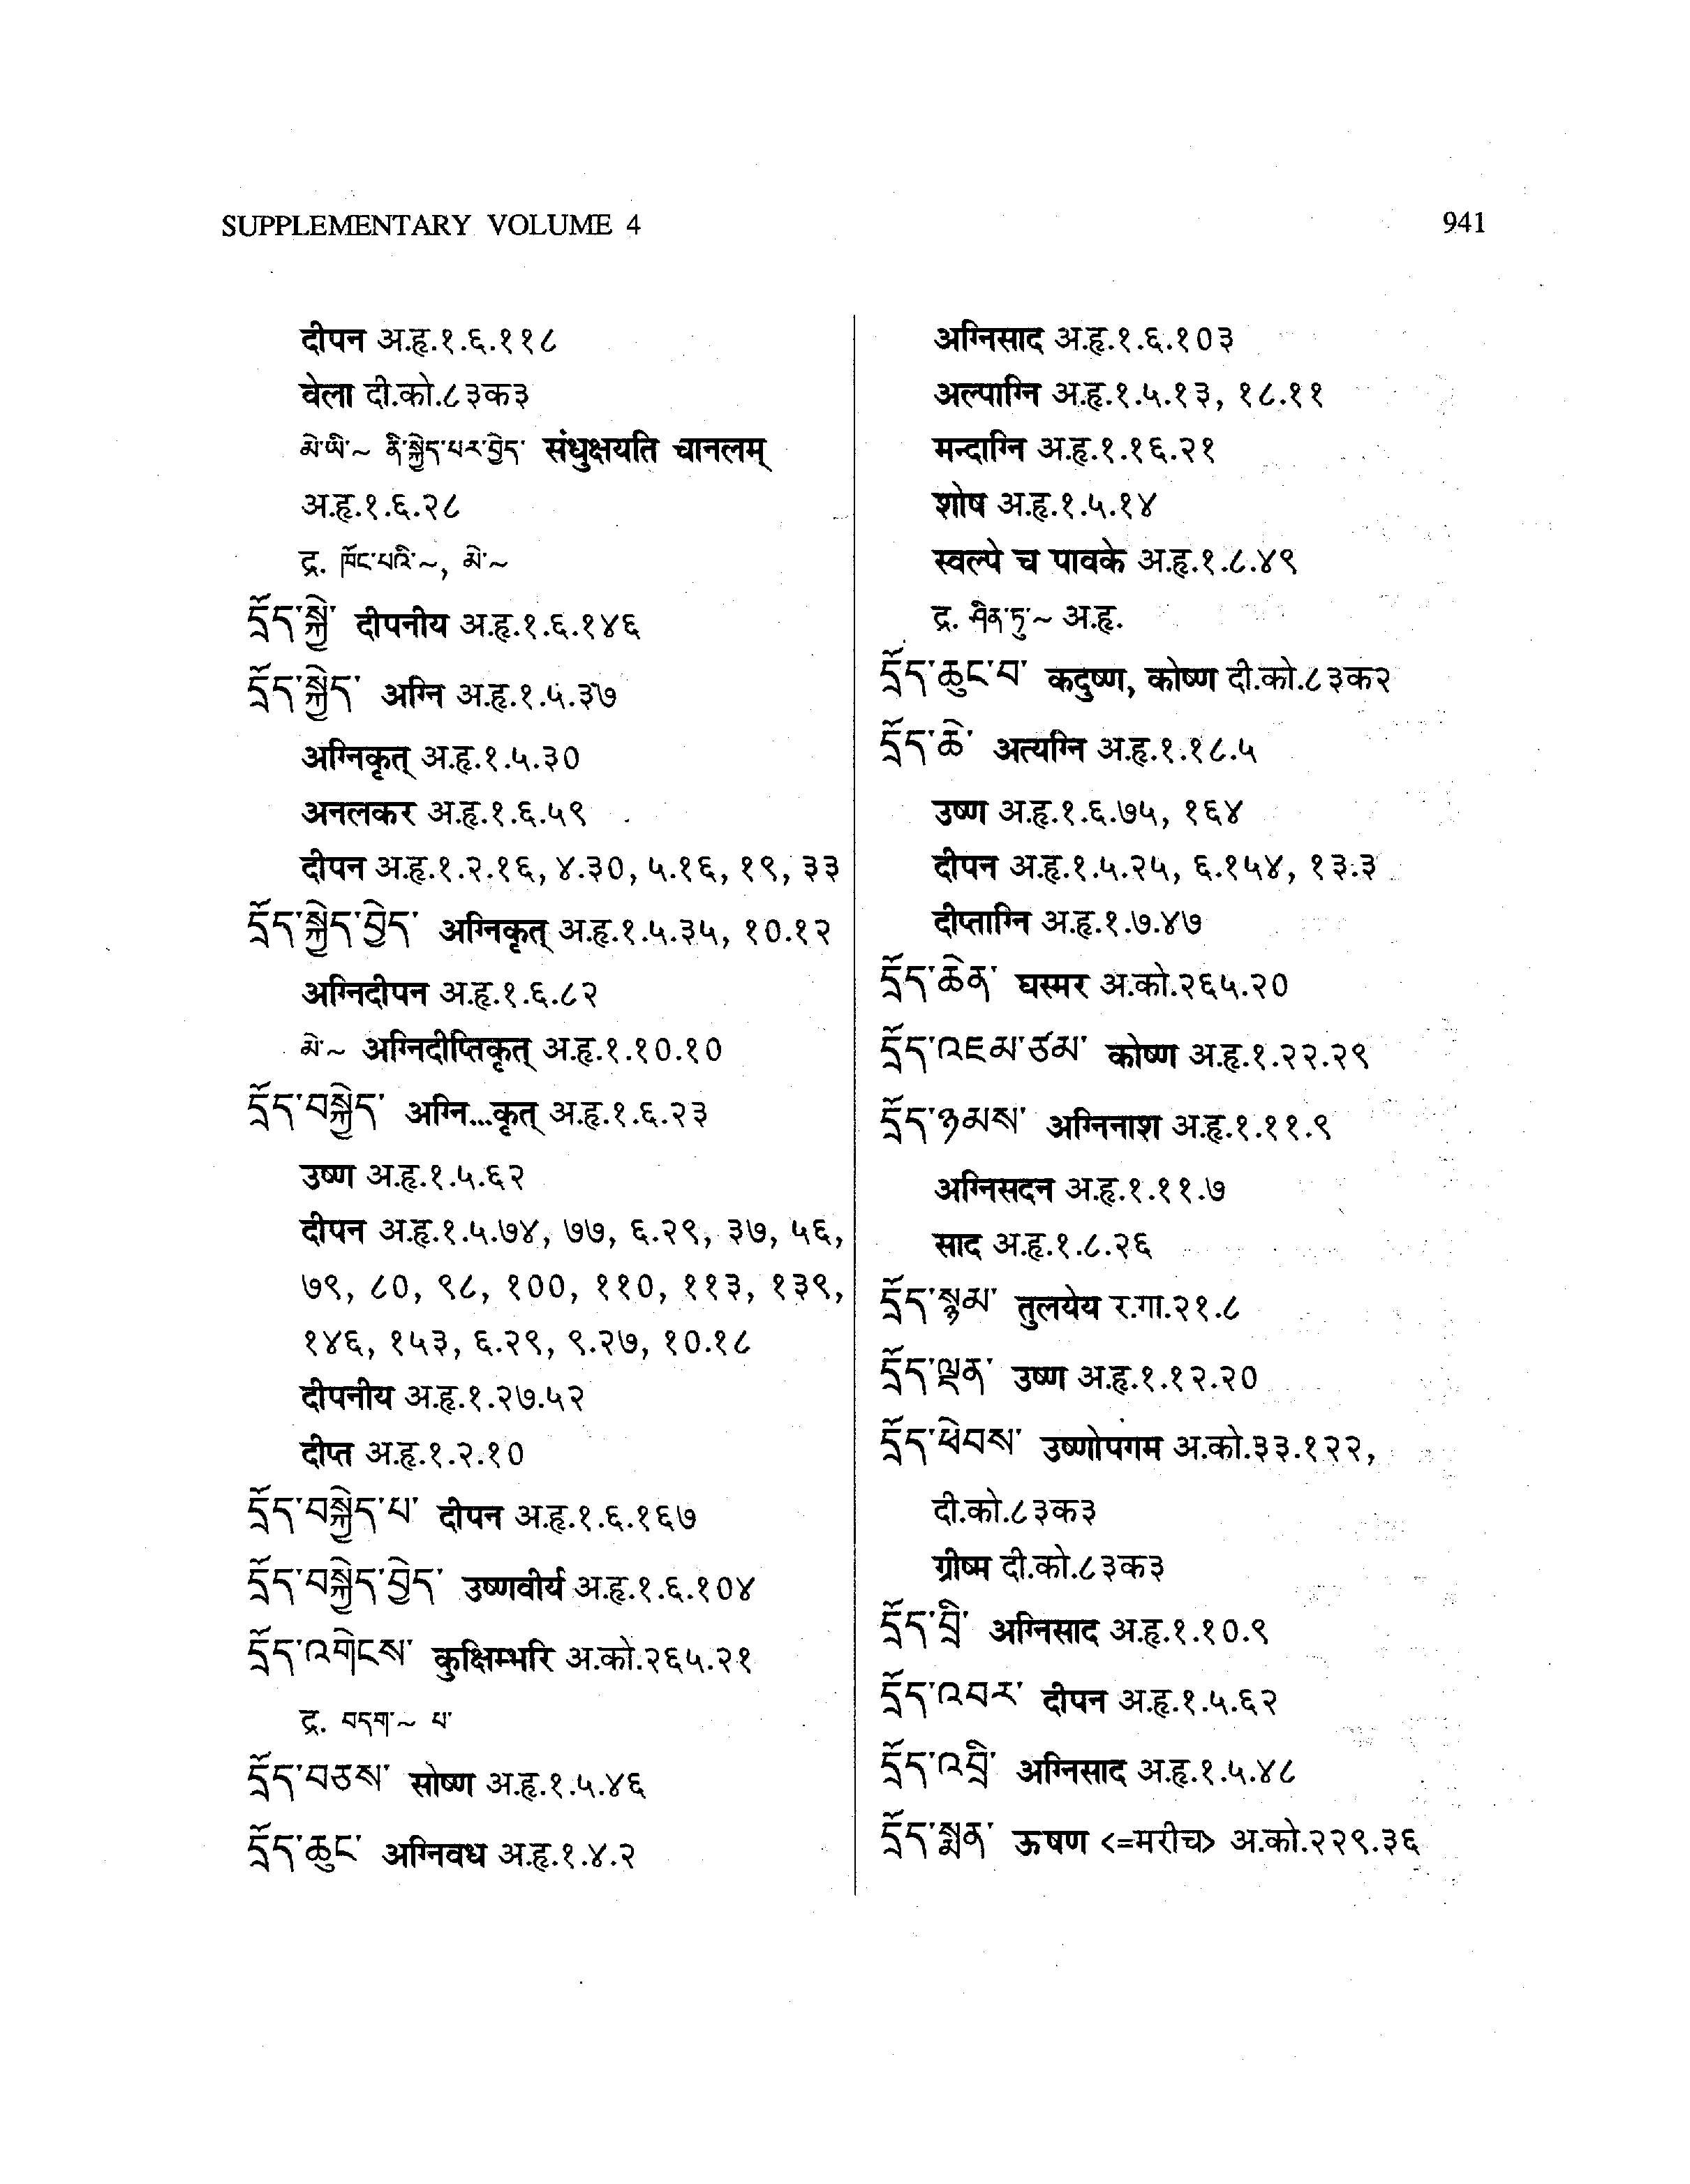 SUPPLEMENTARY VOLUME 4
941
दीपन अ.हृ.१.६.११८
वेला दी.को.८३क३
མེ་ཡི་~ ནི་སྐྱེད་པར་བྱེད་ संधुक्षयति चानलम्
अ.हृ.१.६.२८
द्र. ཁོང་པའི་~, མེ་~
དྲོད་སྐྱེ་ दीपनीय अ.हृ.१.६.१४६
དྲོད་སྐྱེད་ अग्नि अ.हृ.१.५.३७
अग्निकृत् अ.हृ.१.५.३०
अनलकर अ.हृ.१.६.५९
दीपन अ.हृ.१.२.१६, ४.३०, ५.१६, १९, ३३
དྲོད་སྐྱེད་བྱེད་ अग्निकृत् अ.हृ.१.५.३५, १०.१२
अग्निदीपन अ.हृ.१.६.८२
མེ་~ अग्निदीप्तिकृत् अ.हृ.१.१०.१०
དྲོད་བསྐྱེད་ अग्नि...कृत् अ.हृ.१.६.२३
उष्ण अ.हृ.१.५.६२
दीपन अ.हृ.१.५.७४, ७७, ६.२९, ३७, ५६,
७९, ८०, ९८, १००, ११०, ११३, १३९,
१४६, १५३, ६.२९, ९.२७, १०.१८
दीपनीय अ.हृ.१.२७.५२
दीप्त अ.हृ.१.२.१०
དྲོད་བསྐྱེད་པ་ दीपन अ.हृ.१.६.१६७
དྲོད་བསྐྱེད་བྱེད་ उष्णवीर्य अ.हृ.१.६.१०४
དྲོད་འགེངས་ कुक्षिम्भरि अ.को.२६५.२१
द्र. བདག་~ པ་
དྲོད་བཅས་ सोष्ण अ.हृ.१.५.४६
དྲོད་ཆུང་ अग्निवध अ.हृ.१.४.२
अग्निसाद अ.हृ.१.६.१०३
अल्पाग्नि अ.हृ.१.५.१३, १८.११
मन्दाग्नि अ.हृ.१.१६.२१
शोष अ.हृ.१.५.१४
स्वल्पे च पावके अ.हृ.१.८.४९
द्र. ཤིན་ཏུ་~ अ.हृ.
དྲོད་ཆུང་བ་ कदुष्ण, कोष्ण दी.को.८३क२
དྲོད་ཆེ་ अत्यग्नि अ.हृ.१.१८.५
उष्ण अ.हृ.१.६.७५, १६४
दीपन अ.हृ.१.५.२५, ६.१५४, १३.३
दीप्ताग्नि अ.हृ.१.७.४७
དྲོད་ཆེན་ घस्मर अ.को.२६५.२०
དྲོད་འཇམ་ཙམ་ कोष्ण अ.हृ.१.२२.२९
དྲོད་ཉམས་ अग्निनाश अ.हृ.१.११.९
अग्निसदन अ.हृ.१.११.७
साद अ.हृ.१.८.२६
དྲོད་སྙམ་ तुलयेय र.गा.२१.८
དྲོད་ལྡན་ उष्ण अ.हृ.१.१२.२०
དྲོད་ཕེབས་ उष्णोपगम अ.को.३३.१२२,
दी.को.८३क३
ग्रीष्म दी.को.८३क३
དྲོད་བྲི་ अग्निसाद अ.हृ.१.१०.९
དྲོད་འབར་ दीपन अ.हृ.१.५.६२
དྲོད་འབྲི་ अग्निसाद अ.हृ.१.५.४८
དྲོད་སྨན་ ऊषण <=मरीच> अ.को.२२९.३६